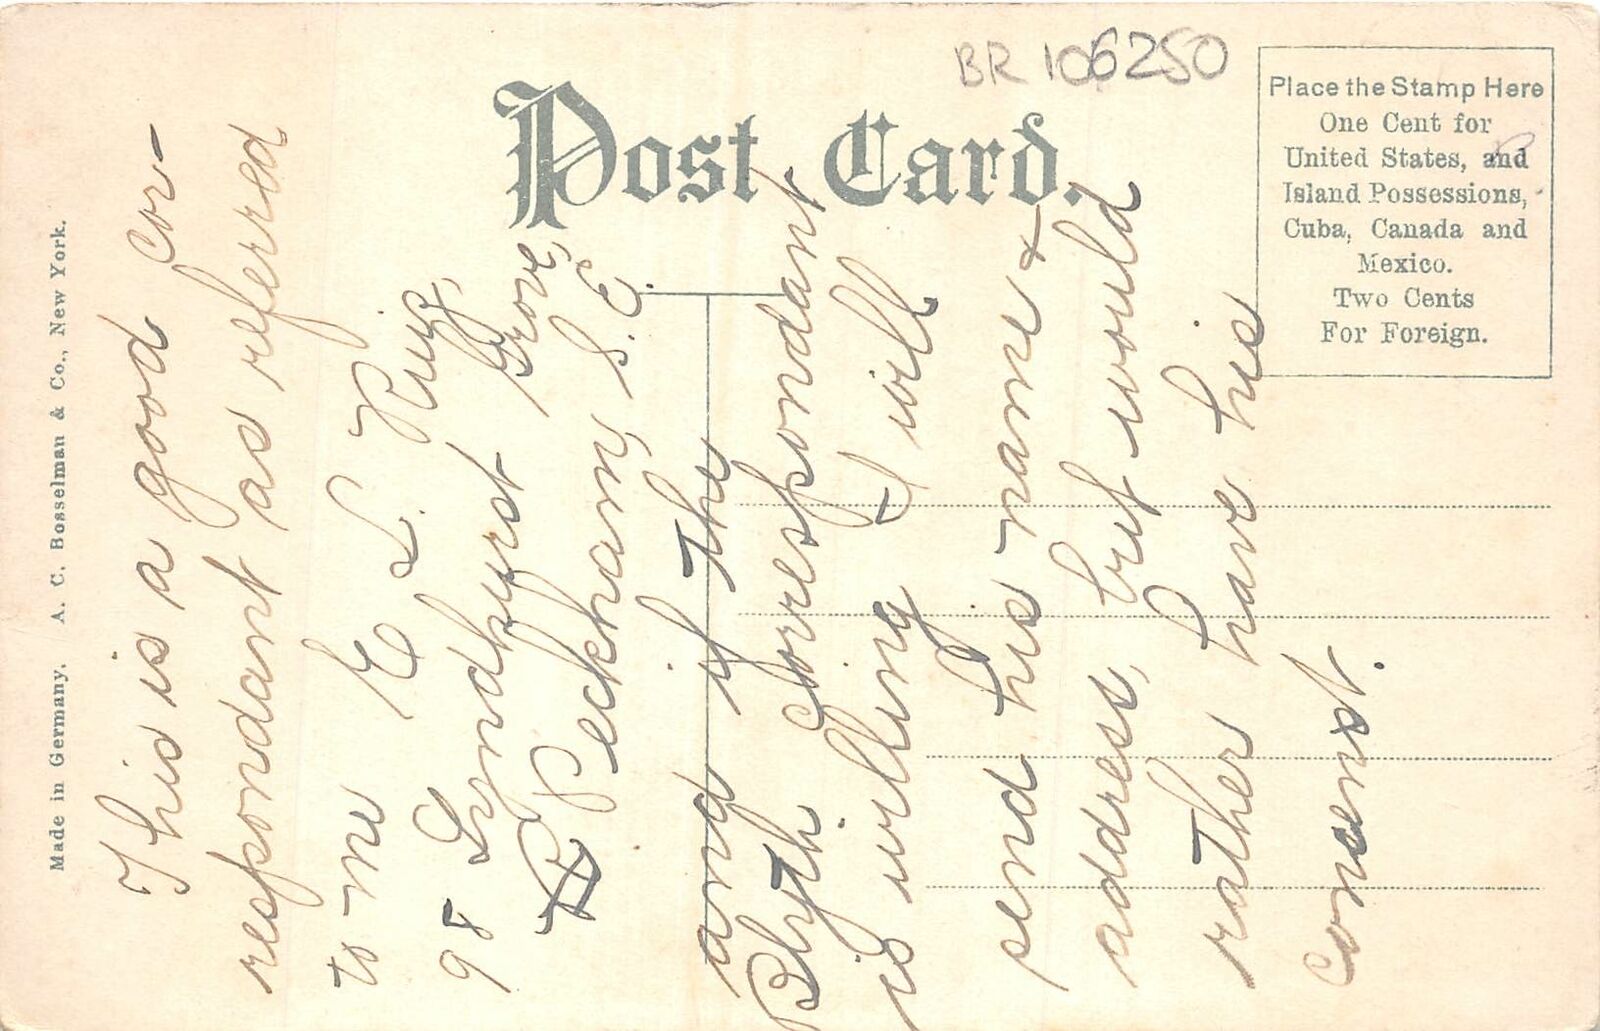 BR 106250
Post Card.
Place the Stamp Here
One Cent for
United States, and
Island Possessions,
Cuba, Canada and
Mexico.
Two Cents
For Foreign.
Made in Germany. A. C. Bosselman & Co., New York.
This is a good cor-
respondant as referred
to me E L.
98 Lyndhurst Grove,
Peckham, S. E.
and if the
Blyth Correspondant
is willing I will
send his name +
address, but would
rather have his
consent.